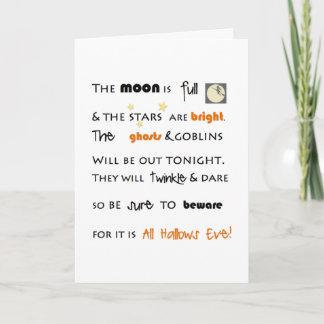 THE MOON IS full
& THE STARS ARE BRIGHT.
The ghosts & GOBLINS
WILL BE OUT TONIGHT.
THEY WILL twinkle & DARE
SO BE sure TO beware
FOR IT IS All Hallows Eve!